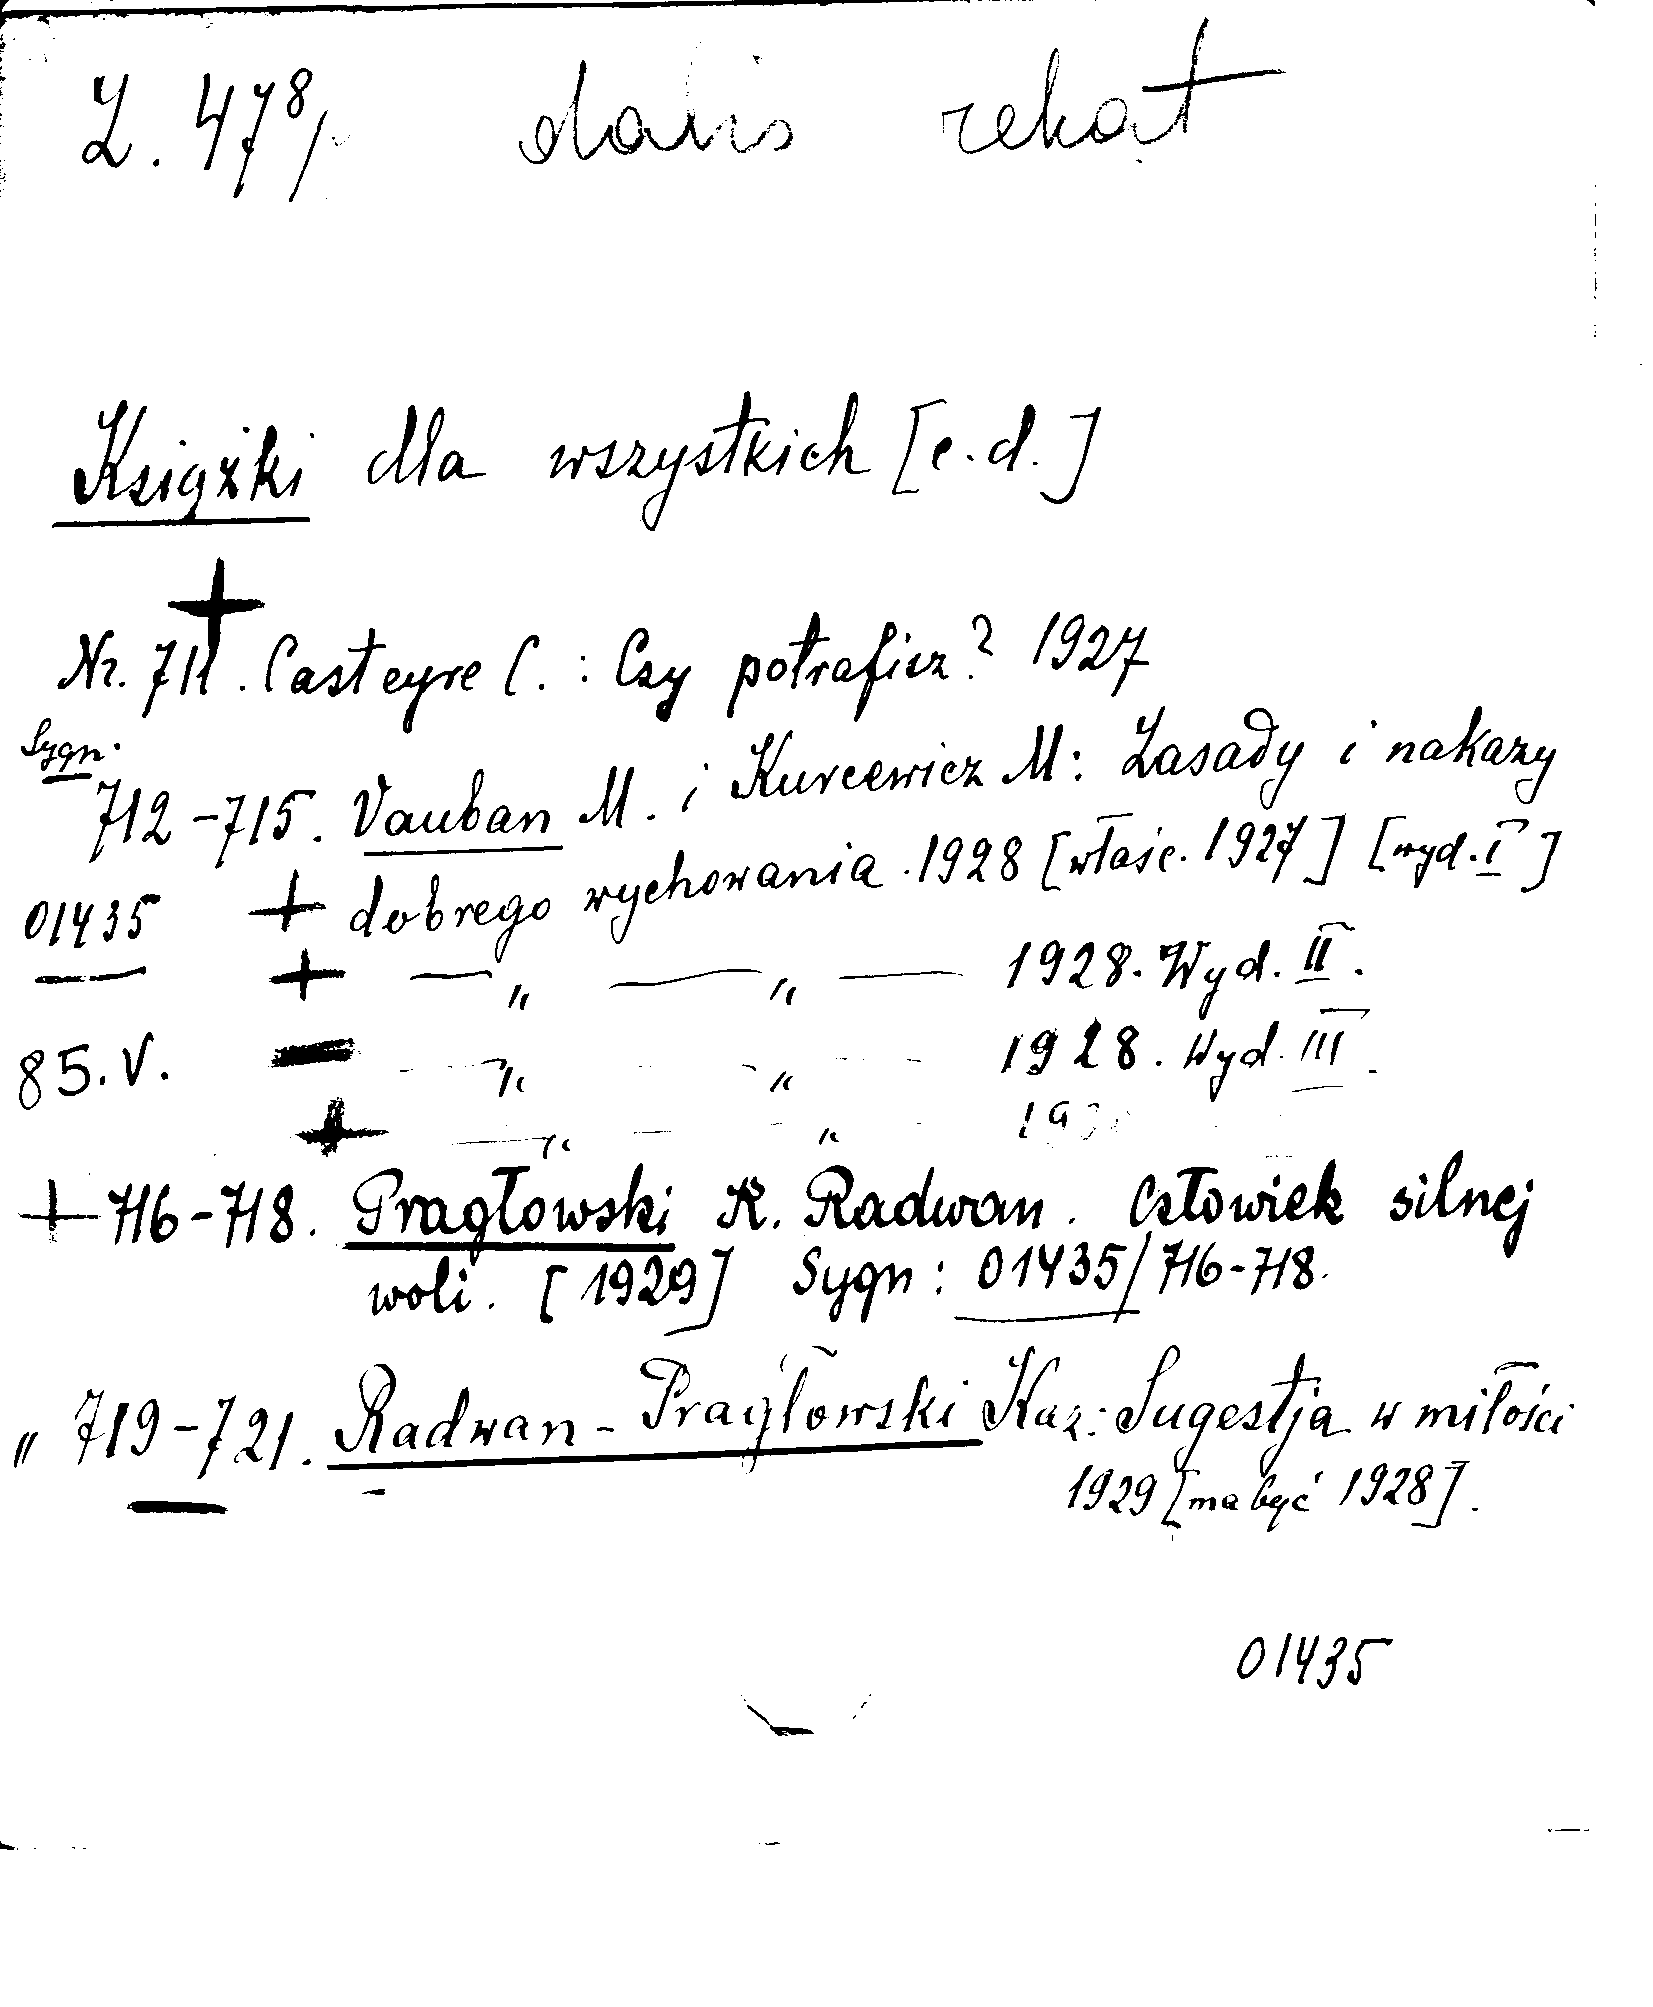 Z. 478/
Książki dla wszystkich [c.d.]
+
Nr. 711. Casteyre C. : Czy potrafisz? 1927
Sygn.
712-715. Vauban M. i Kurcewicz M: Zasady i nakazy
01435 + dobrego wychowania. 1928 [właśc. 1927] [wyd. I]
+ — „ — „ — 1928. Wyd. II.
85.V. — „ — „ — 1928. Wyd. III.
+ — „ — „
+ 716-718. Pragłowski K. Radwan. Człowiek silnej
woli. [1929] Sygn: 01435/716-718.
„ 719-721. Radwan-Pragłowski Kaz: Sugestja w miłości
1929 [ma być 1928].
01435